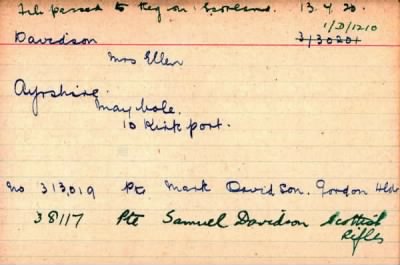 File passed to Reg on Scotland. 13.4.20.
1/D/1210
Davidson 3/30201
Mrs Ellen
Ayrshire.
Maybole.
10 Kirkport.
No 313,019 Pte Mark Davidson. Gordon Hldrs
38117 Pte Samuel Davidson Scottish
Rifles